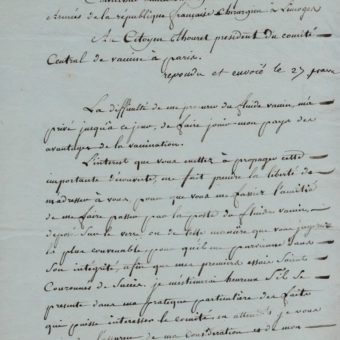 Armées de la république française Chirurgien à Limoges
Au Citoyen thouret president du comité
Central de vaccine à paris.
repondu et envoié le 27
La difficulté de me procurer du fluide vaccin, m'a
privé jusqu'à ce jour, de faire jouir mon pays des
avantages de la vaccination.
L'interet que vous mettez a propager cette
importante découverte, me fait prendre la liberté de
m'adresser à vous pour que vous me fassiez l'amitié
de me faire passer par la poste du fluide vaccin,
deposé sur le verre ou de telle manière que vous jugerez
la plus convenable pour qu'il me parvienne dans
son intégrité afin que mes premiers essais soient
Couronnés de succès. je m'estimerai heureux s'il se
presente dans ma pratique particulière des faits
qui puisse interesser le comité. en attendant je vous
de ma Consideration et de mon